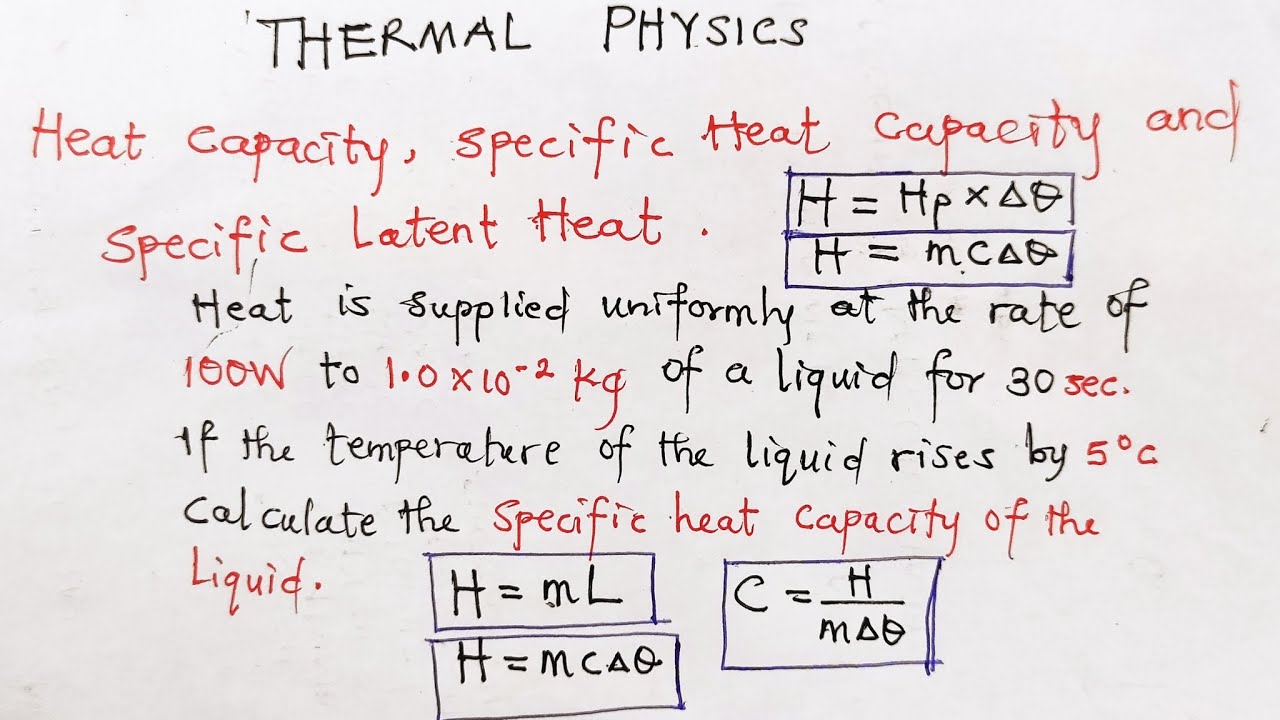 THERMAL PHYSICS
Heat Capacity, Specific Heat Capacity and
Specific Latent Heat.
H = Hp × Δθ
H = mcΔθ
Heat is supplied uniformly at the rate of
100W to 1.0×10⁻² kg of a liquid for 30 sec.
If the temperature of the liquid rises by 5°C
Calculate the Specific heat capacity of the
Liquid.
H = mL
H = mcΔθ
C = H / mΔθ